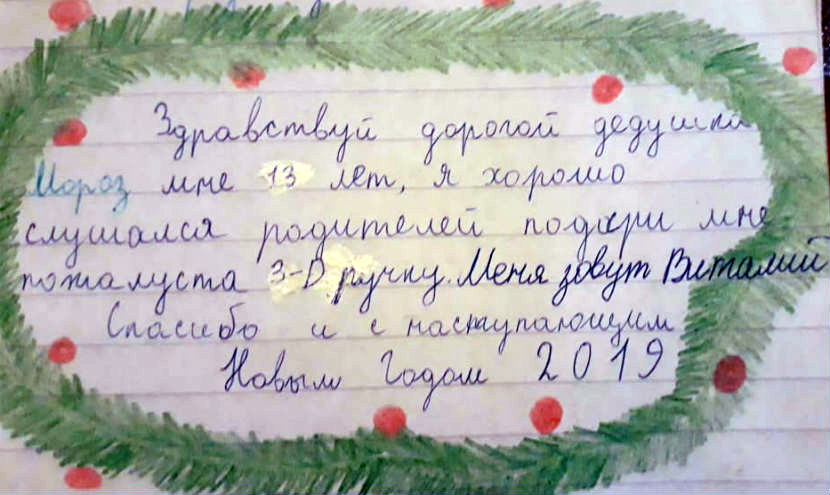 Здравствуй дорогой дедушка
Мороз мне 13 лет, я хорошо
слушался родителей подари мне
пожалуста 3-D ручку. Меня зовут Виталий
Спасибо и с наступающим
Новым Годом 2019